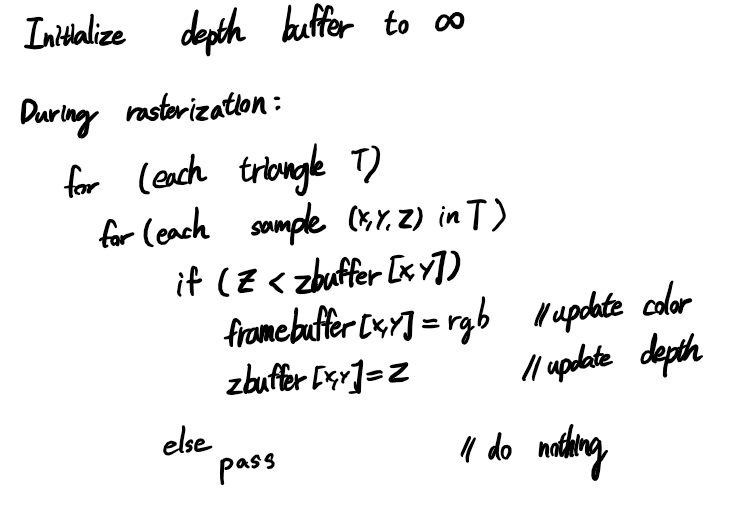 Initialize depth buffer to ∞
During rasterization:
for (each triangle T)
for (each sample (x,y,z) in T)
if (z < zbuffer[x,y])
framebuffer[x,y] = rgb //update color
zbuffer[x,y] = z //update depth
else
pass // do nothing